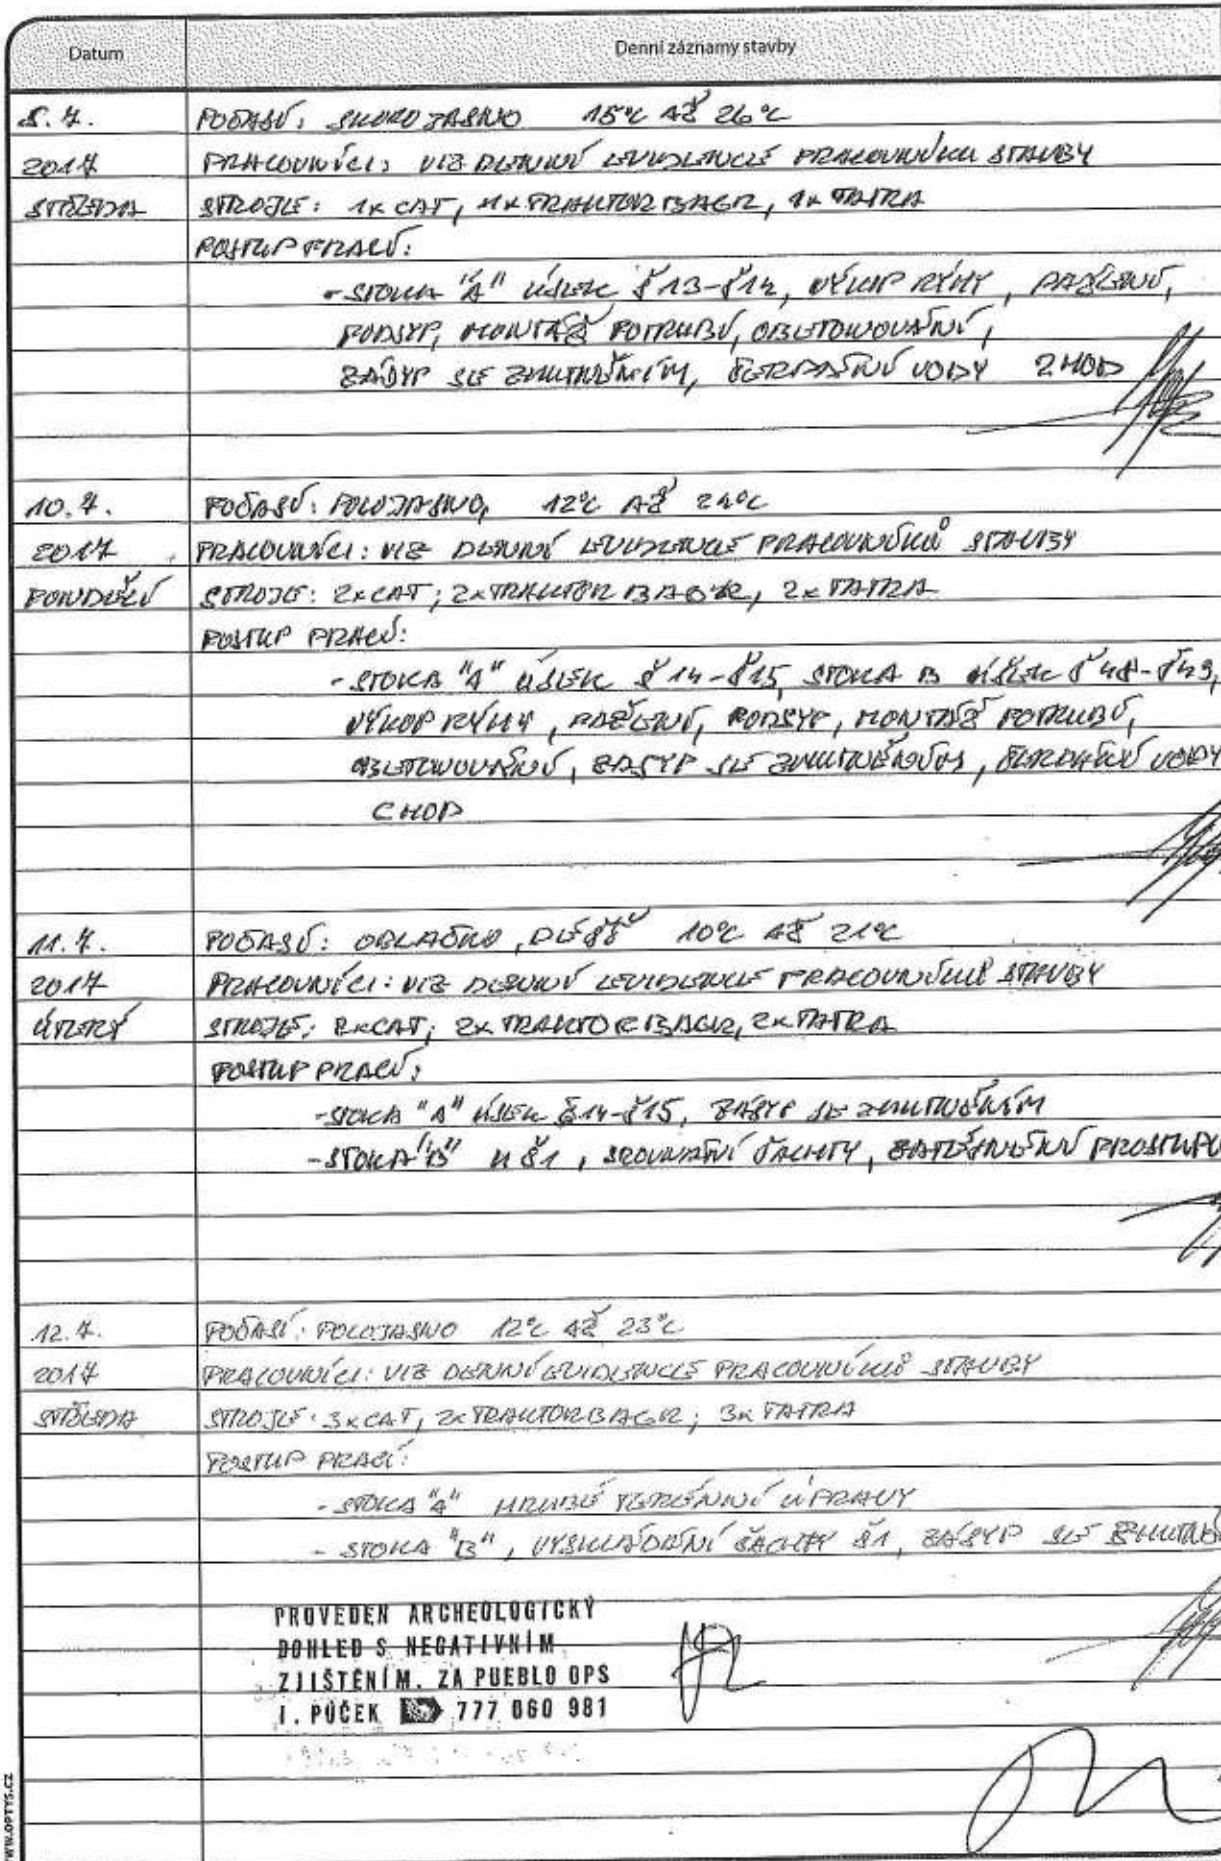 Datum Denní záznamy stavby
5.7. POČASÍ: SKORO JASNO 15°C AŽ 26°C
2017 PRACOVNÍCI: VIZ DENNÍ EVIDENCE PRACOVNÍKŮ STAVBY
STŘEDA STROJE: 1x CAT, 1x TRAKTOR BAGR, 1x TATRA
POSTUP PRACÍ:
- STOKA "A" ÚSEK Š13-Š14, VÝKOP RÝHY, PAŽENÍ,
PODSYP, MONTÁŽ POTRUBÍ, OBETONOVÁNÍ,
ZÁSYP SE ZHUTNĚNÍM, ČERPÁNÍ VODY 2HOD
10.7. POČASÍ: POLOJASNO, 12°C AŽ 24°C
2017 PRACOVNÍCI: VIZ DENNÍ EVIDENCE PRACOVNÍKŮ STAVBY
PONDĚLÍ STROJE: 2x CAT; 2x TRAKTOR BAGR, 2x TATRA
POSTUP PRACÍ:
- STOKA "A" ÚSEK Š14-Š15, STOKA B ÚSEK Š48-Š49,
VÝKOP RÝHY, PAŽENÍ, PODSYP, MONTÁŽ POTRUBÍ,
OBETONOVÁNÍ, ZÁSYP SE ZHUTNĚNÍM, ČERPÁNÍ VODY
HOD
11.7. POČASÍ: OBLAČNO, DÉŠŤ 10°C AŽ 21°C
2017 PRACOVNÍCI: VIZ DENNÍ EVIDENCE PRACOVNÍKŮ STAVBY
ÚTERÝ STROJE: 2x CAT; 2x TRAKTOR BAGR, 2x TATRA
POSTUP PRACÍ:
- STOKA "A" ÚSEK Š14-Š15, ZÁSYP SE ZHUTNĚNÍM
- STOKA "B" U Š1, SROVNÁNÍ ŠACHTY, ZATĚSNĚNÍ PROSTUPU
12.7. POČASÍ: POLOJASNO 12°C AŽ 23°C
2017 PRACOVNÍCI: VIZ DENNÍ EVIDENCE PRACOVNÍKŮ STAVBY
STŘEDA STROJE: 3x CAT, 2x TRAKTORBAGR; 3x TATRA
POSTUP PRACÍ:
- STOKA "A" HRUBÉ TERÉNNÍ ÚPRAVY
- STOKA "B", VYSKLÁDÁNÍ ŠACHTY Š1, ZÁSYP SE ZHUTNĚ
PROVEDEN ARCHEOLOGICKÝ
DOHLED S NEGATIVNÍM
ZJIŠTĚNÍM. ZA PUEBLO OPS
I. PŮČEK 777 060 981
WWW.OPTYS.CZ